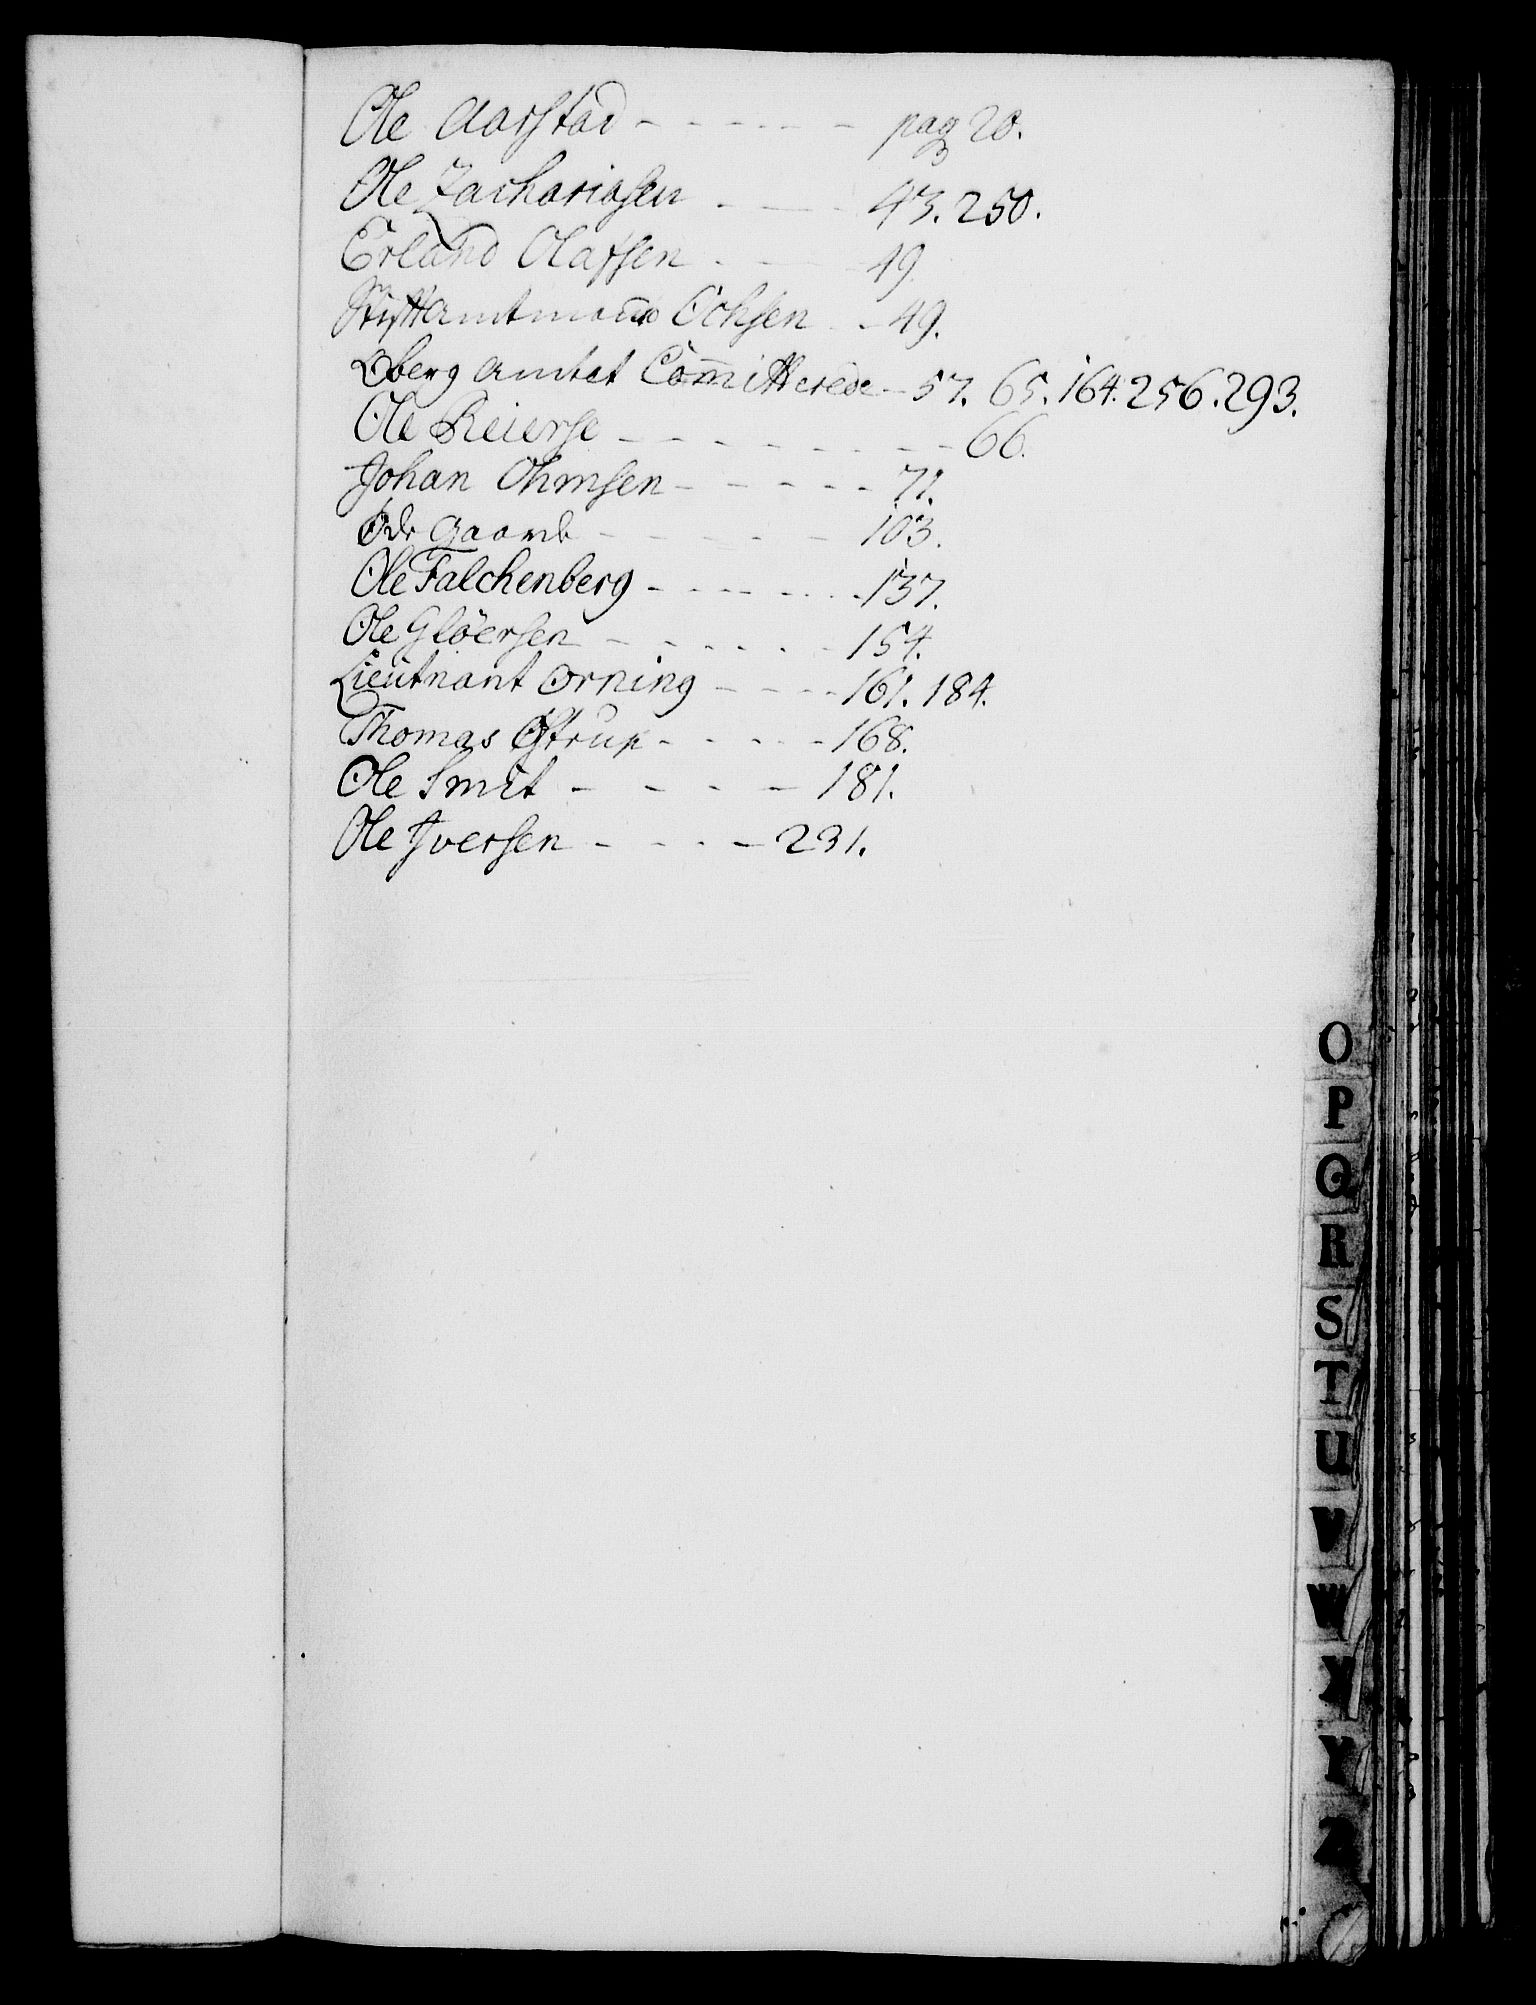 Ole Aarstad - - - - - - pag 20.
Ole Zachariasen - - - 43. 250.
Erland Olafsen - - - 49.
Stiftamtmand Ochsen - - 49.
Oberg Amtet Com̄itterede - 57. 65. 164. 256. 293.
Ole Reierse - - - - - - - 66.
Johan Ohmsen - - - - - 71.
Ode Gaarde - - - - - 103.
Ole Falchenberg - - - - - - 137.
Ole Glöersen - - - - - - 154.
Lieutnant Orning - - - - 161. 184.
Thomas Østrup - - - - - 168.
Ole Smit - - - - - 181.
Ole Iversen - - - - 231.
O
P
Q
R
S
T
U
V
W
X
Y
Z